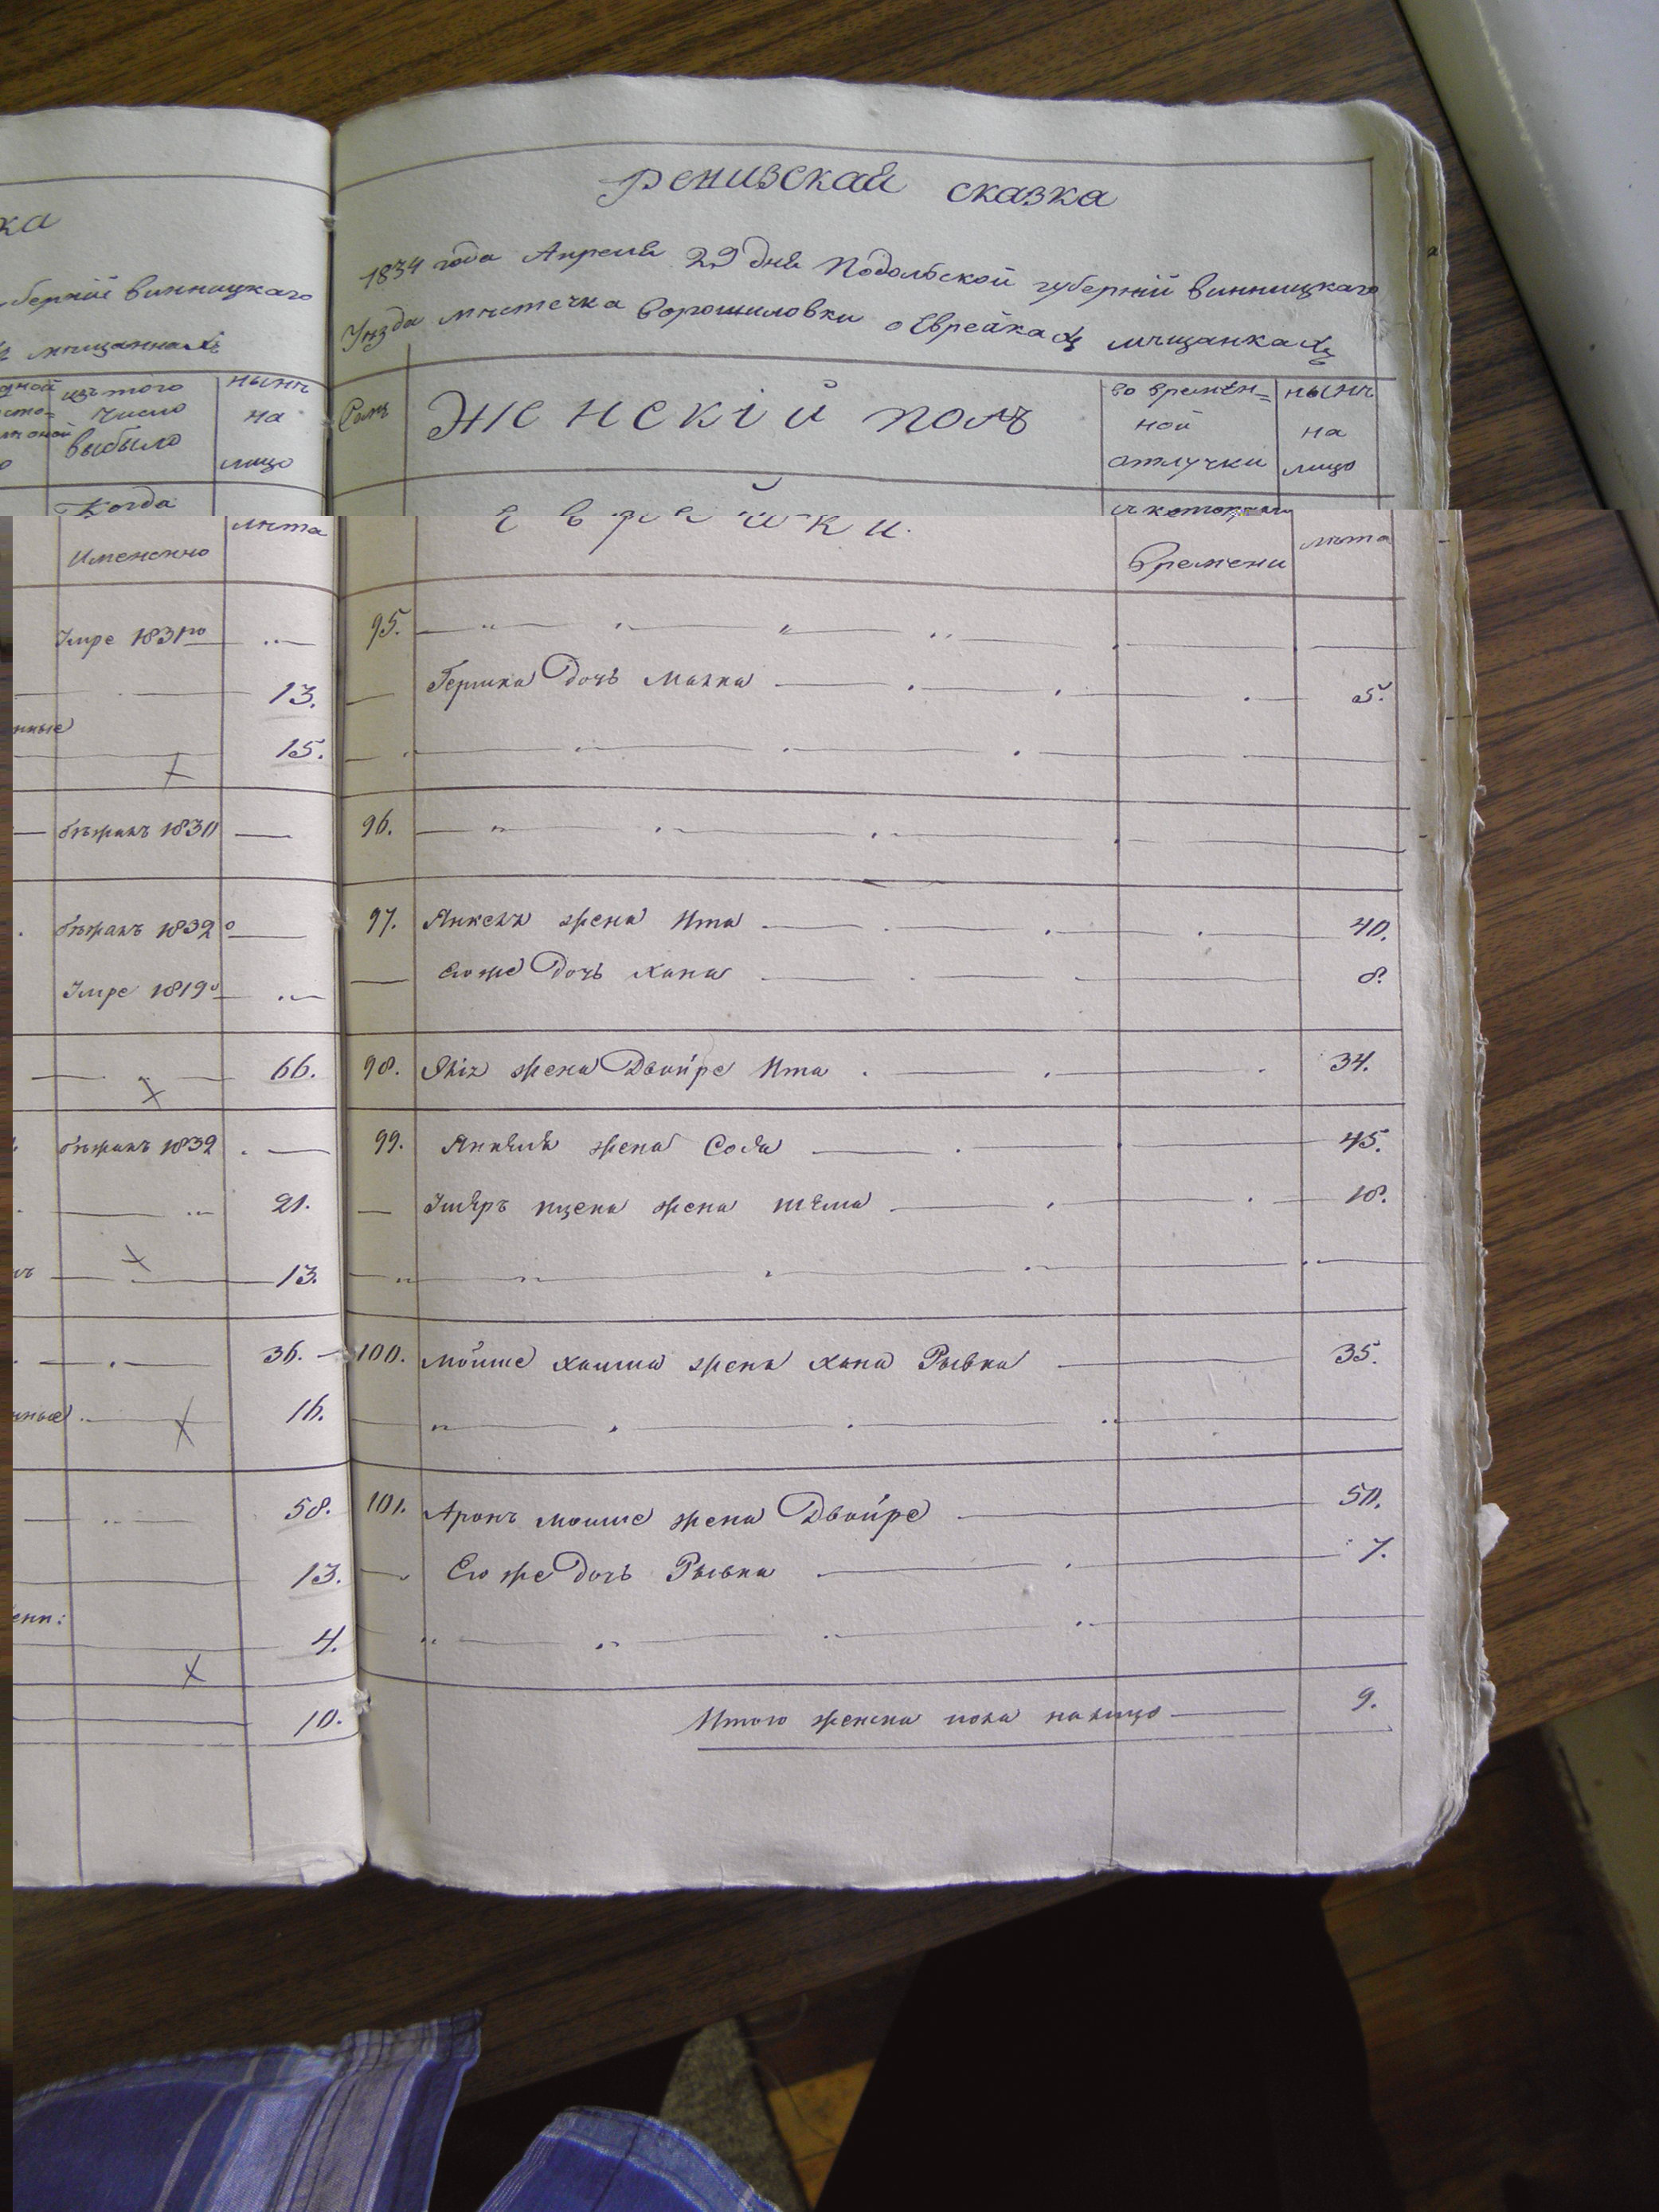 ка
губерніи винницкаго
мещанахъ
изъ того
число
выбыло
нынѣ
на
лицо
Когда
Именно
лѣта
Умре 1831го
13.
15.
бежалъ 1830
бежалъ 1832
Умре 1819
66.
бежалъ 1832
21.
13.
36.
16.
58.
13.
4.
10.
ревизская сказка
1834 года Апреля 29 дня Подольской губерніи винницкаго
Уезда местечка Ворошиловки о Еврейкахъ мещанкахъ
Женскій полъ
во времен=
ной
отлучки
нынѣ
на
лицо
Еврейки.
времени
лѣта
95.
Гершка дочь Малка 5.
96.
97. Янкеля жена Ита 40.
Его же дочь Хана 8.
98. жена Двойре Ита 34.
99. Янкеля жена Сося 45.
жена 18.
100. Мойше Хаима жена Хана Рывка 35.
101. Аронъ Мошше жена Двойре 50.
Его же дочь Рывка 7.
Итого женска пола налицо 9.